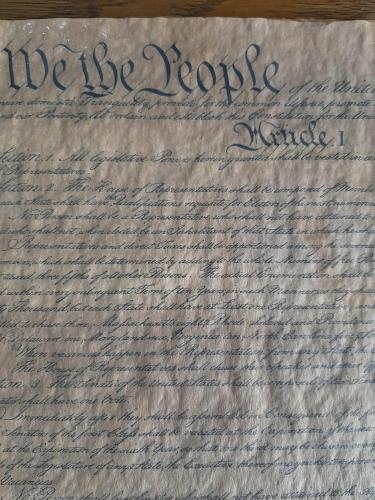 We the People of the United
insure domestic Tranquility, provide for the common defence, promote
and our Posterity, do ordain and establish this Constitution for the Unit
Article. I
Section. 1. All legislative Powers herein granted shall be vested in a
Representatives.
Section. 2. The House of Representatives shall be composed of Memb
each State shall have the Qualifications requisite for Electors of the most numerous
No Person shall be a Representative who shall not have attained to
and who shall not, when elected, be an Inhabitant of that State in which he sha
Representatives and direct Taxes shall be apportioned among the several
Numbers, which shall be determined by adding to the whole Number of free P
three fifths of all other Persons. The actual Enumeration shall be
within every subsequent Term of ten Years, in such Manner as they
Thirty Thousand, but each State shall have at Least one Representative;
entitled to chuse three, Massachusetts eight, Rhode Island and Providence
Delaware one, Maryland six, Virginia ten, North Carolina five,
When vacancies happen in the Representation from any State, the E
The House of Representatives shall chuse their Speaker and other
Section. 3. The Senate of the United States shall be composed of
Senator shall have one Vote.
Immediately after they shall be assembled in Consequence of the fi
Senators of the first Class shall be vacated at the Expiration of the
at the Expiration of the sixth Year, so that one third may be chosen every
of the Legislature of any State, the Executive thereof may make tempora
Vacancies.
No Person shall be a Senator who shall not have attained to the A